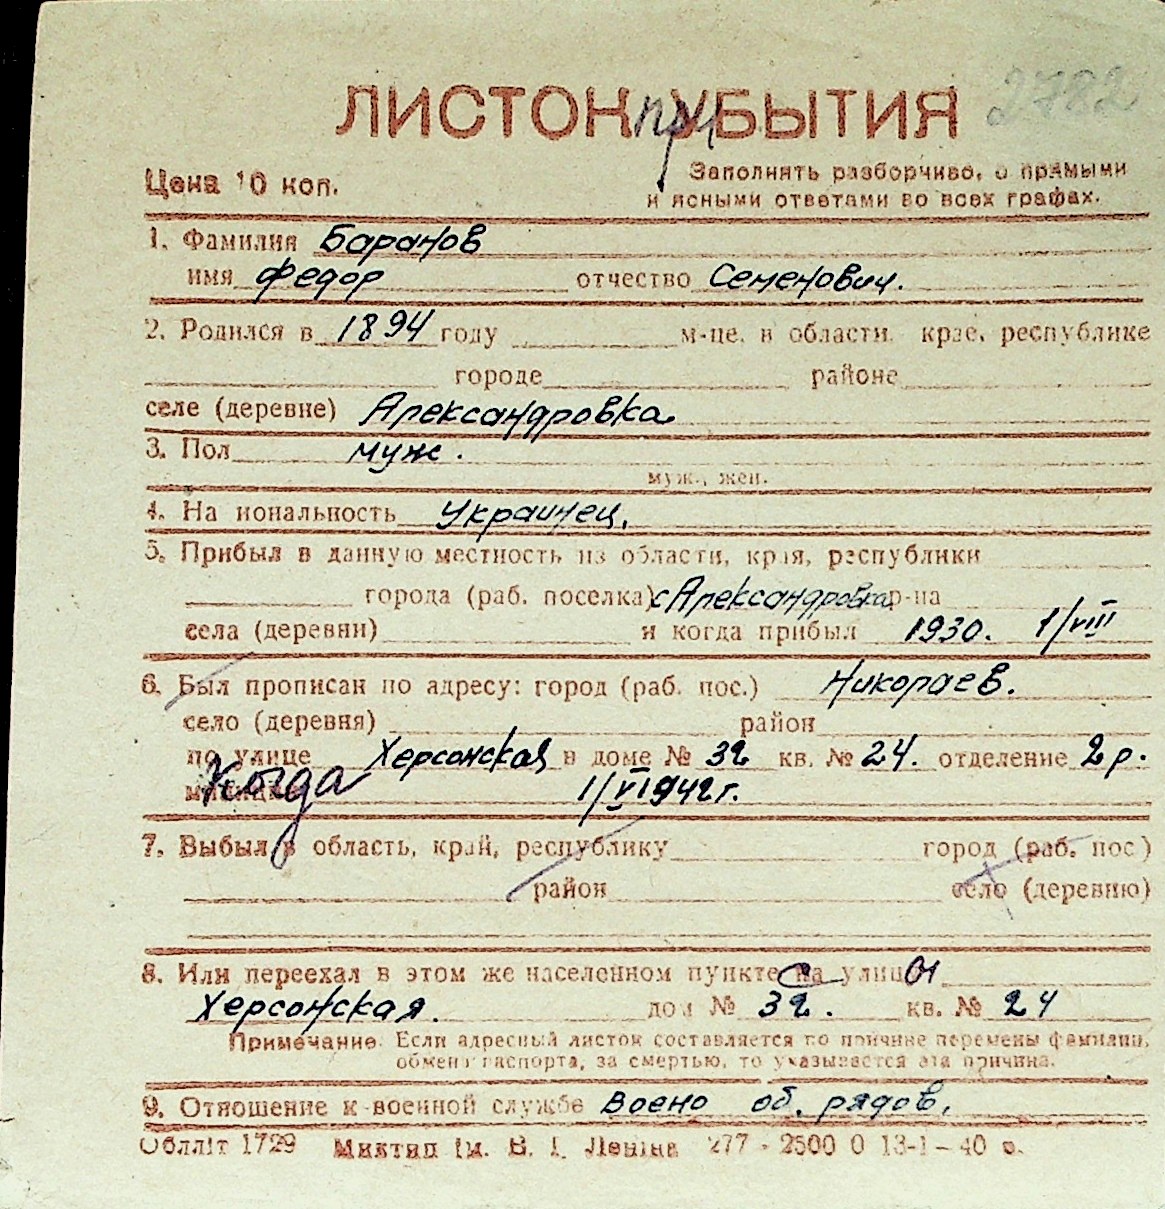 2782
ЛИСТОК при УБЫТИЯ
Цена 10 коп.
Заполнять разборчиво, с прямыми
и ясными ответами во всех графах.
1. Фамилия Баранов
имя Федор отчество Семенович.
2. Родился в 1894 году м-це, в области, крае, республике
городе районе
селе (деревне) Александровка
3. Пол муж.
муж., жен.
4. На иональность Украинец.
5. Прибыл в данную местность из области, края, республики
города (раб. поселка) с Александровка р-на
села (деревни) и когда прибыл 1930. 1/VIII
6. Был прописан по адресу: город (раб. пос.) Николаев.
село (деревня) район
по улице Херсонская в доме № 32 кв. № 24. отделение 2 р.
Когда 1/VI 1942 г.
7. Выбыл в область, край, республику город (раб. пос.)
район село (деревню)
8. Или переехал в этом же населенном пункте с улицы
Херсонская. дом № 32. кв. № 24
Примечание. Если адресный листок составляется по причине перемены фамилии,
обмена паспорта, за смертью, то указывается эта причина.
9. Отношение к военной службе Воено об. рядов.
Облліт 1729 Миктип ім. В. І. Леніна 277 - 2500 0 13-1-40 р.